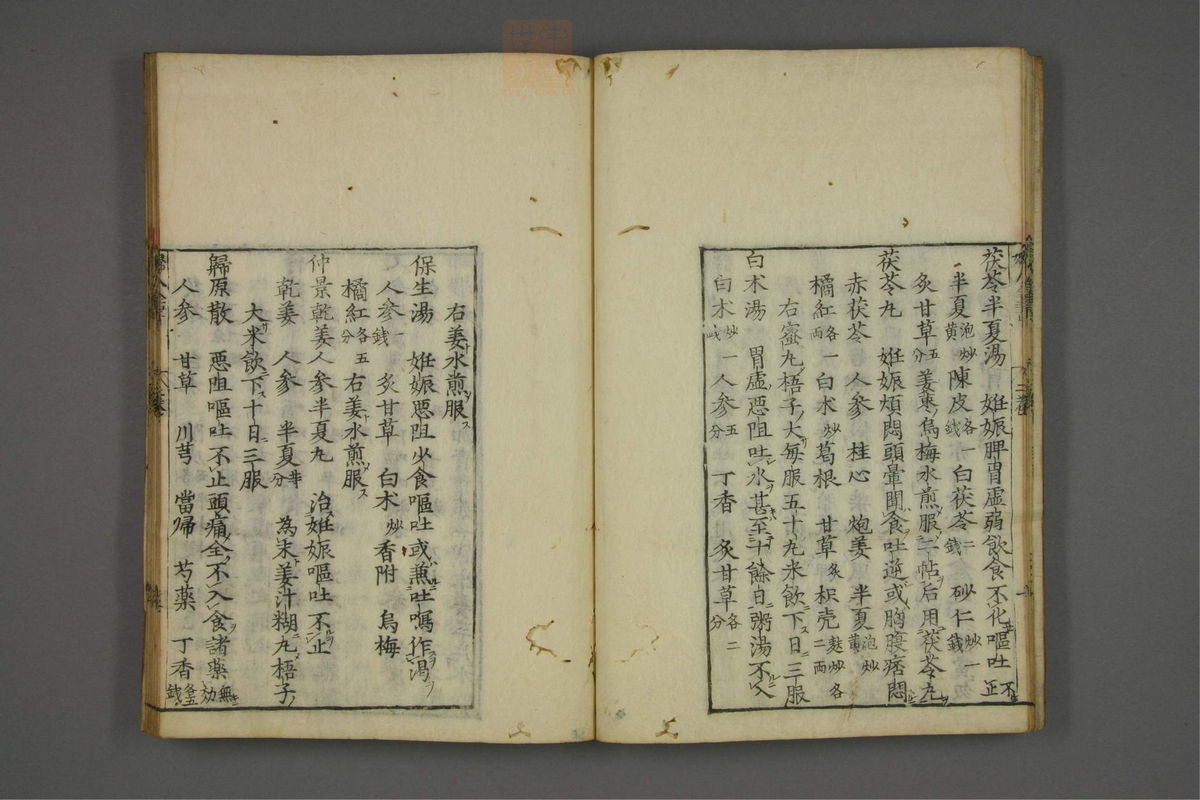 茯苓半夏湯 姙娠脾胃虛弱飲食不化嘔吐不正
半夏泡炒黄 陳皮各一錢 白茯苓二錢 砂仁炒一錢
炙甘草五分 姜棗烏梅水煎服二帖后用茯苓丸
茯苓丸 姙娠煩悶頭暈聞食吐逆或胸腹痞悶
赤茯苓 人參 桂心 炮姜 半夏泡炒黄
橘紅各一両 白朮炒 葛根 甘草炙 枳壳麸炒各二両
右蜜丸梧子大每服五十丸米飲下日三服
白朮湯 胃虛惡阻吐水甚至十餘日粥湯不入
白朮炒一錢 人參五分 丁香 炙甘草各二分
右姜水煎服
保生湯 姙娠惡阻少食嘔吐或兼吐瀉作渴
人參一錢 炙甘草 白朮炒 香附 烏梅
橘紅各五分 右姜水煎服
仲景乾姜人參半夏丸 治姙娠嘔吐不止
乾姜 人參 半夏等分 為末姜汁糊丸梧子
大米飲下十日三服
歸原散 惡阻嘔吐不止頭痛全不入食諸藥無効
人參 甘草 川芎 當歸 芍藥 丁香各五錢